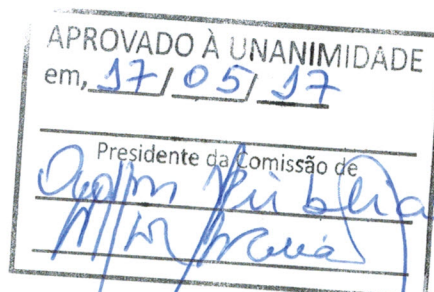 APROVADO À UNANIMIDADE
em, 17/05/17
Presidente da Comissão de